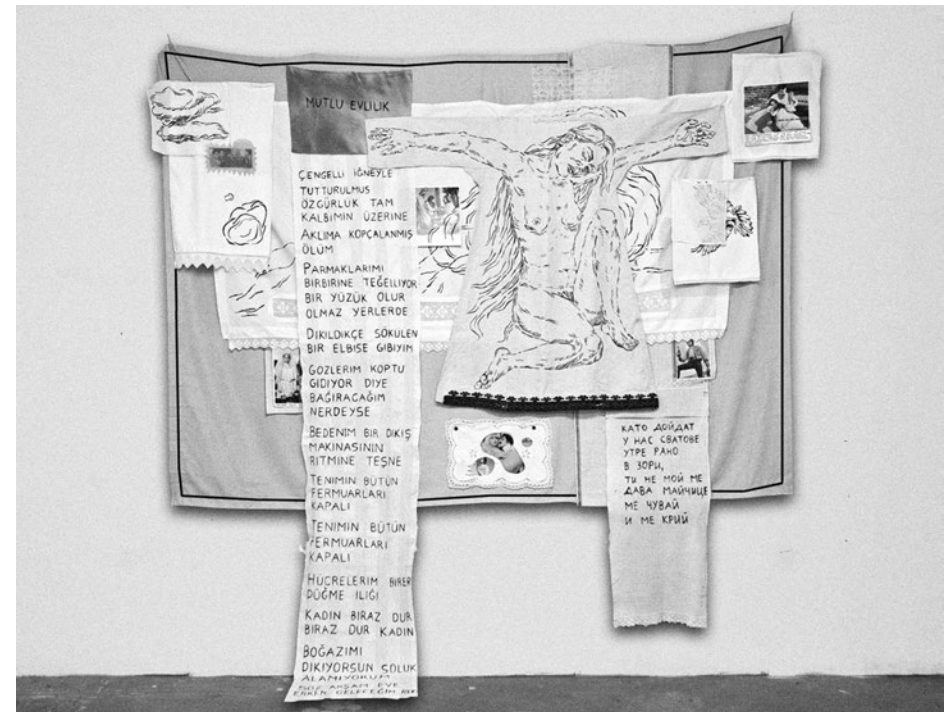 MUTLU EVLILIK
ÇENGELLI İĞNEYLE
TUTTURULMUŞ
ÖZGÜRLÜK TAM
KALBIMIN ÜZERINE
AKLIMA KOPÇALANMIŞ
ÖLÜM
PARMAKLARIMI
BIRBIRINE TEĞELLIYOR
BIR YÜZÜK OLUR
OLMAZ YERLERDE
DIKILDIKÇE SÖKÜLEN
BIR ELBISE GIBIYIM
GÖZLERIM KOPTU
GIDIYOR DIYE
BAĞIRACAĞIM
NERDEYSE
BEDENIM BIR DIKIŞ
MAKINASININ
RITMINE TEŞNE
TENIMIN BÜTÜN
FERMUARLARI
KAPALI
TENIMIN BÜTÜN
FERMUARLARI
KAPALI
HÜCRELERIM BIRER
DÜĞME ILIĞI
KADIN BIRAZ DUR
BIRAZ DUR KADIN
BOĞAZIMI
DIKIYORSUN SOLUK
ALAMIYORUM
SÖZ AKŞAM EVE
ERKEN GELECEĞIM
КАТО ДОЙДАТ
У НАС СВАТОВЕ
УТРЕ РАНО
В ЗОРИ,
ТИ НЕ МОЙ МЕ
ДАВА МАЙЧИЦЕ
МЕ ЧУВАЙ
И МЕ КРИЙ